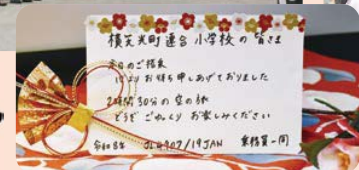 横芝光町連合小学校の皆さま
本日のご搭乗
心よりお待ち申しあげておりました
2時間30分の空の旅
どうぞごゆっくりお楽しみください
令和8年 JL4907/19JAN 乗務員一同